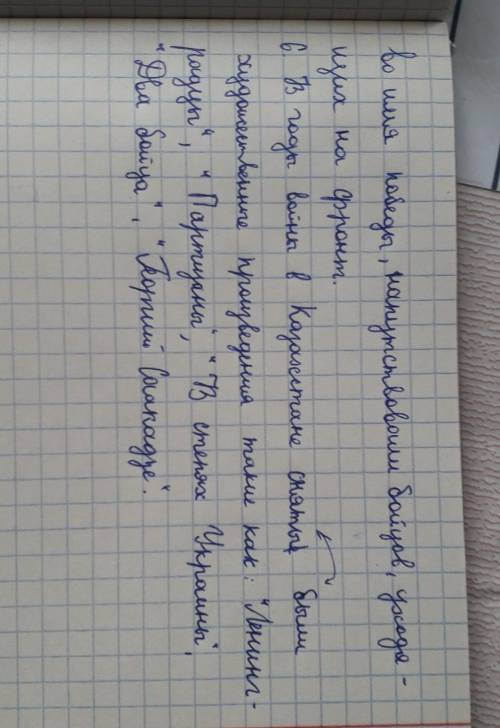 во имя победы, напутствовали бойцов, уходя-
щих на фронт.
6. В годы войны в Казахстане сняты были
художественные произведения такие как: "Ленинг-
радцы", "Партизаны", "В степях Украины",
"Два бойца", "Георгий Саакадзе".